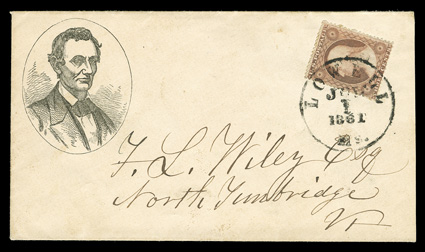 LOWELL
JUL
1
1861
Ms.
F. L. Wiley Esq
North Tunbridge
Vt